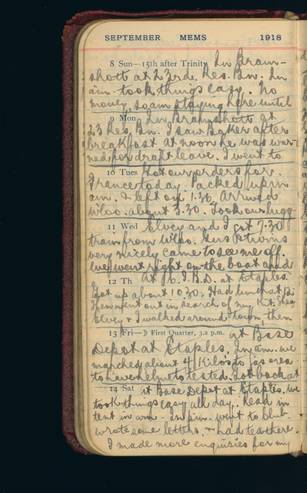 SEPTEMBER MEMS 1918
8 Sun—15th after Trinity In Bram-
shott at 23rd Res. Bn. In
a.m. took things easy. No
money, so am staying here until
9 Mon In Bramshott at
23 Res. Bn. I saw Baker after
breakfast at noon he was war-
ned for draft leave. I went to
10 Tues Got our orders for
France today. Packed up in
a.m. & left on 1.30. Arrived
W'loo. about 3.30. Took our lugg
11 Wed Elvey and I got 7.30
train from W'loo.
very nicely came to see me off.
We went right on the boat and
12 Th At I.B.D. at Etaples.
Got up about 10.30. Had lunch
Then went out in search of my kit. Then
Elvey & I walked around town then
13 Fri—☽ First Quarter, 3.2 p.m. At Base
Depot at Etaples. In a.m. we
marched about 4 Kilos to gas area
to have helmets tested. Got back at
14 Sat At Base Depot at Etaples. We
took things easy all day. Read in
tent in a.m. In p.m. went to club
wrote some letters & had tea there.
I made more enquiries for my